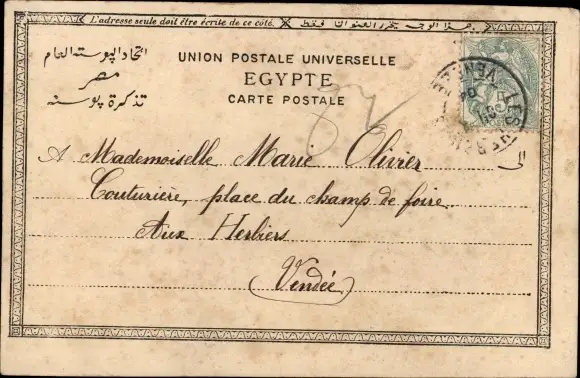 L'adresse seule doit être écrite de ce côté. هذا الوجه يحرر العنوان فقط
اتحاد البوسته العام
مصر
تذكرة بوسته
UNION POSTALE UNIVERSELLE
EGYPTE
CARTE POSTALE
A Mademoiselle Marie Olivier
Couturière, place du champ de foire
Aux Herbiers
(Vendée)